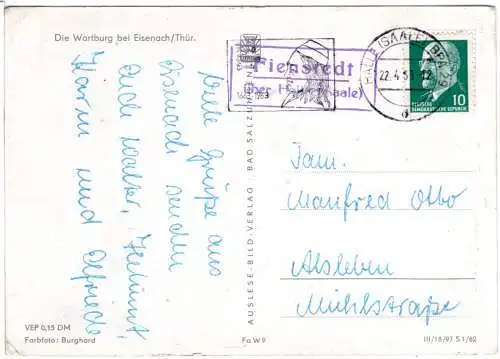 Die Wartburg bei Eisenach/Thür.
Viele Grüße aus
Eisenach senden
Euch Walter, Helmut,
Karin und Elfriede
VEP 0,15 DM
Farbfoto: Burghard
Fa W 9
AUSLESE-BILD-VERLAG · BAD SALZUNGEN
Fienstedt
über Halle (Saale)
HALLE (SAALE) BPA 32
22.4.63-12
DEUTSCHE
DEMOKRATISCHE REPUBLIK
10
Fam.
Manfred Otto
Alsleben
Mühlstraße
III/18/97 S 1/62